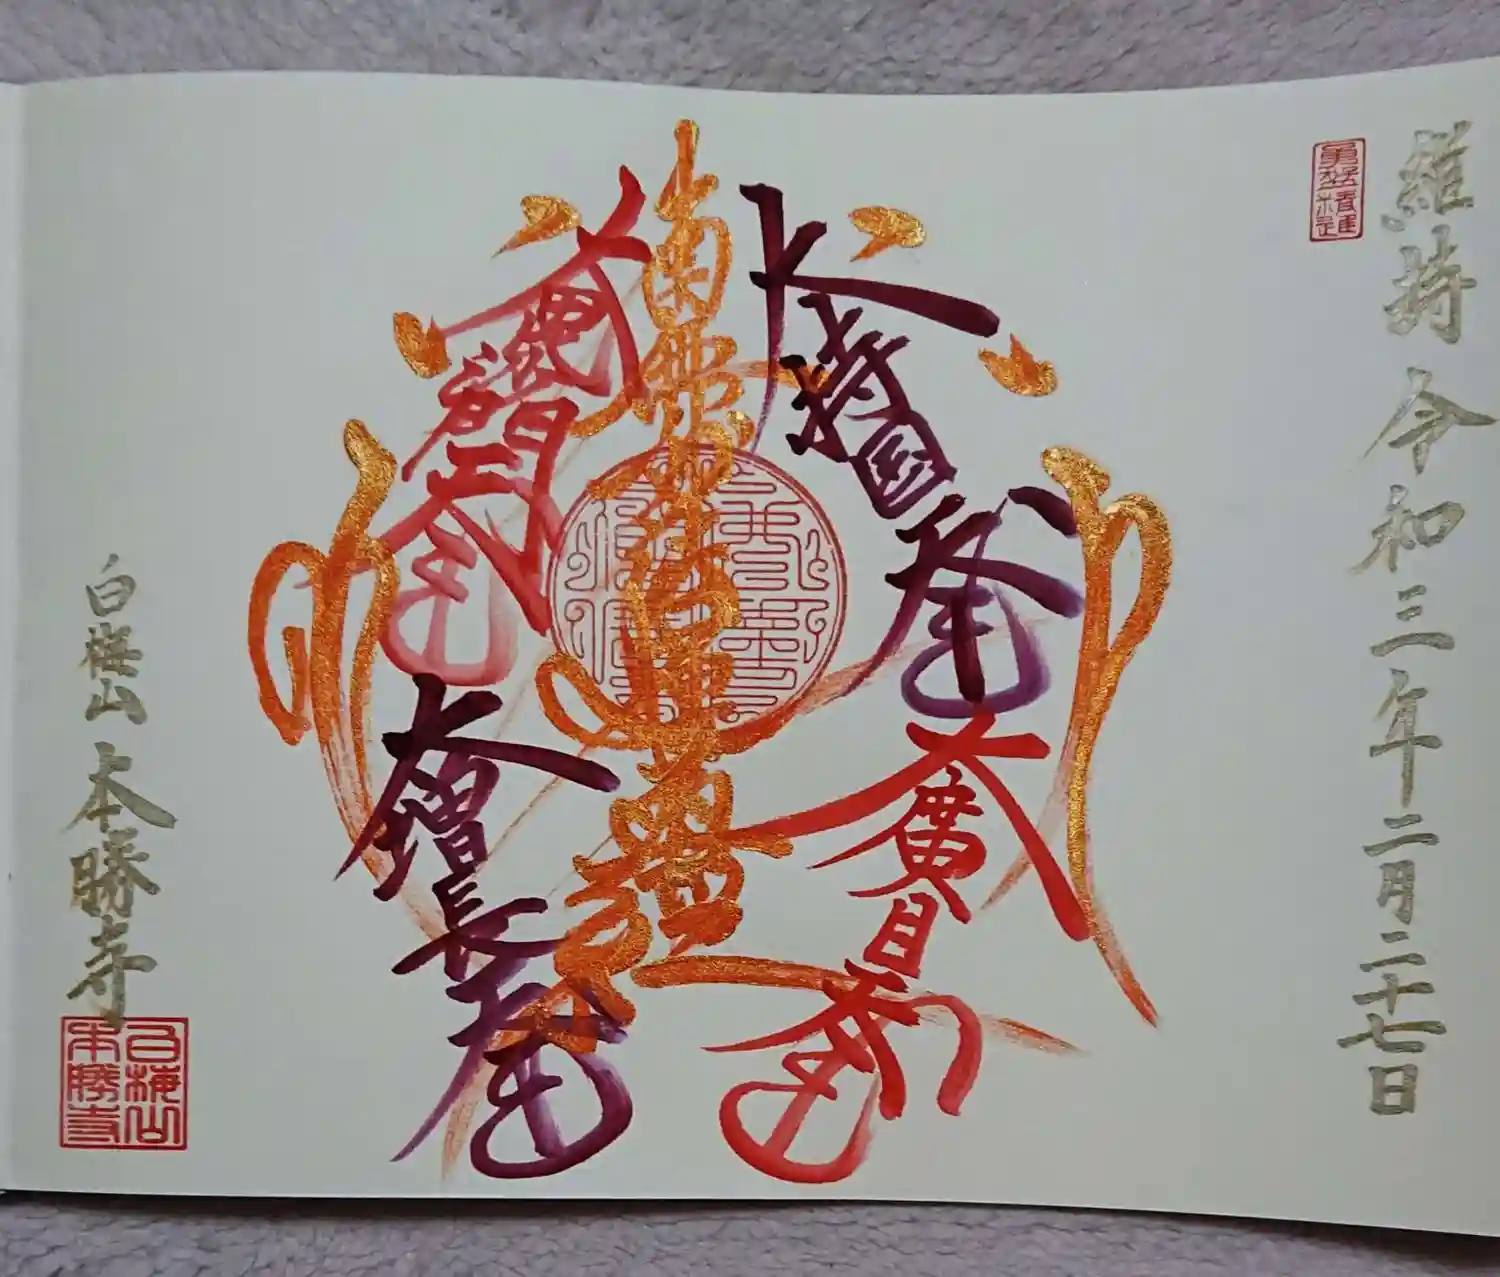 維持 令和三年二月二十七日
勇猛精進
大持国天王
大廣目天王
南無妙法蓮華經
大毘沙門天王
大増長天王
白梅山 本勝寺
白梅山
本勝寺